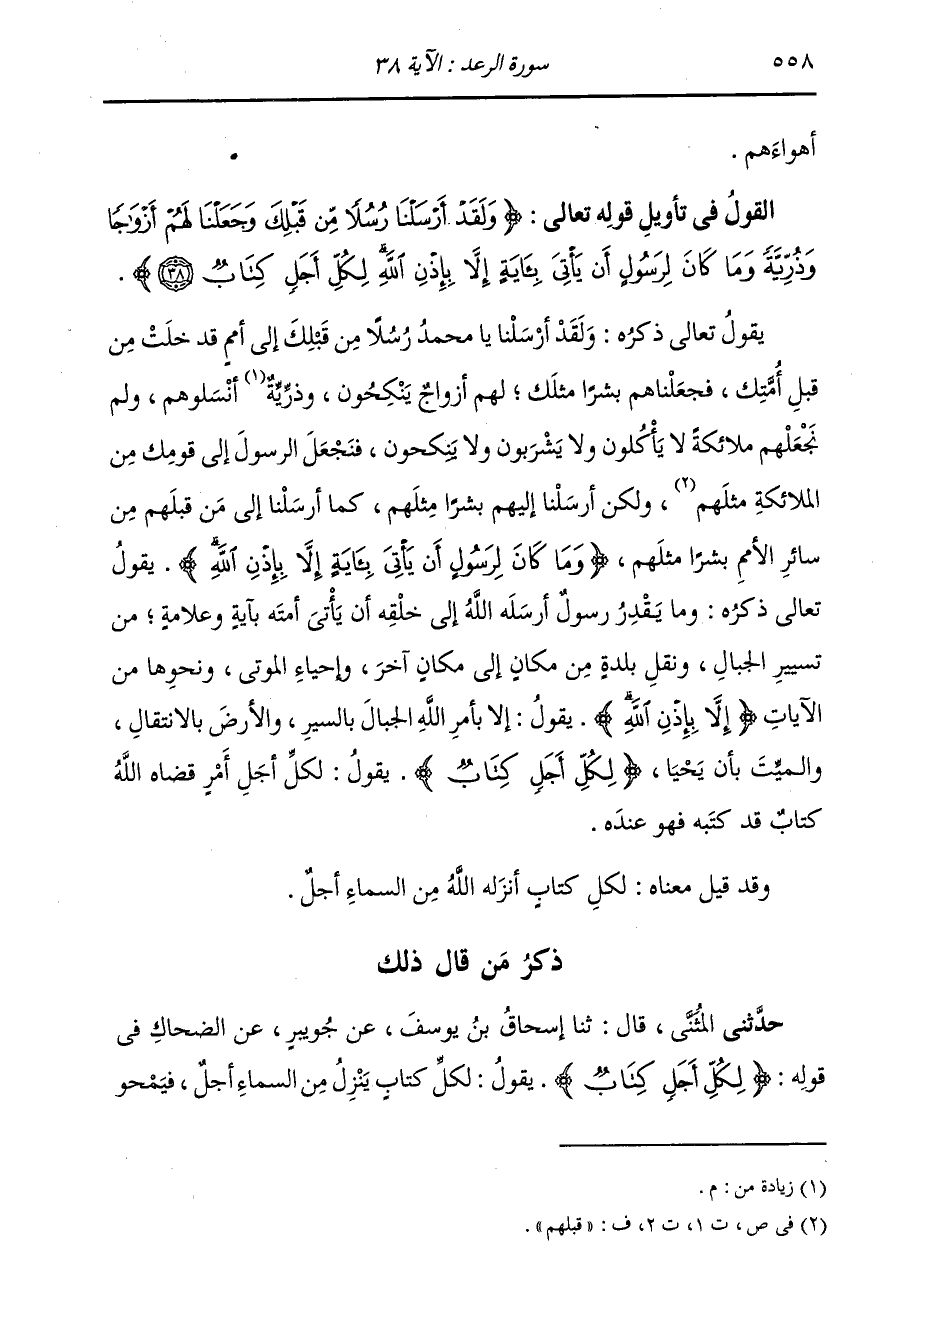 ٥٥٨ سورة الرعد : الآية ٣٨
أهواءَهم .
القولُ فى تأويلِ قولِه تعالى : ﴿ وَلَقَدْ أَرْسَلْنَا رُسُلًا مِّن قَبْلِكَ وَجَعَلْنَا لَهُمْ أَزْوَٰجًا
وَذُرِّيَّةً وَمَا كَانَ لِرَسُولٍ أَن يَأْتِىَ بِـَٔايَةٍ إِلَّا بِإِذْنِ ٱللَّهِۗ لِكُلِّ أَجَلٍ كِتَابٌ ﴿٣٨﴾ ﴾ .
يقولُ تعالى ذكرُه : وَلَقَدْ أرْسَلْنا يا محمدُ رُسُلًا مِن قَبْلِكَ إلى أممٍ قد خلَتْ مِن
قبلِ أُمَّتِك ، فجعَلْناهم بشرًا مثلَك ؛ لهم أزواجٌ يَنْكِحُون ، وذرِّيَّةٌ(١) أنْسَلوهم ، ولم
نَجْعَلْهم ملائكةً لا يَأْكُلون ولا يَشْرَبون ولا يَنكِحون ، فنَجْعَلَ الرسولَ إلى قومِك مِن
الملائكةِ مثلَهم(٢) ، ولكن أرسَلْنا إليهم بشرًا مِثلَهم ، كما أرسَلْنا إلى مَن قبلَهم مِن
سائرِ الأممِ بشرًا مثلَهم ، ﴿ وَمَا كَانَ لِرَسُولٍ أَن يَأْتِىَ بِـَٔايَةٍ إِلَّا بِإِذْنِ ٱللَّهِۗ ﴾ . يقولُ
تعالى ذكرُه : وما يَقْدِرُ رسولٌ أرسَلَه اللَّهُ إلى خلْقِه أن يَأْتىَ أمتَه بآيةٍ وعلامةٍ ؛ من
تسييرِ الجبالِ ، ونقلِ بلدةٍ مِن مكانٍ إلى مكانٍ آخرَ ، وإحياءِ الموتى ، ونحوِها من
الآياتِ ﴿ إِلَّا بِإِذْنِ ٱللَّهِۗ ﴾ . يقولُ : إلا بأمرِ اللَّهِ الجبالَ بالسيرِ ، والأرضَ بالانتقالِ ،
والميِّتَ بأن يَحْيَا ، ﴿ لِكُلِّ أَجَلٍ كِتَابٌ ﴾ . يقولُ : لكلِّ أجَلِ أَمْرٍ قضاه اللَّهُ
كتابٌ قد كتَبه فهو عندَه .
وقد قيل معناه : لكلِ كتابٍ أنزَله اللَّهُ مِن السماءِ أجلٌ .
ذكرُ مَن قال ذلك
حدَّثنى المُثَنَّى ، قال : ثنا إسحاقُ بنُ يوسفَ ، عن جُويبرٍ ، عن الضحاكِ فى
قولِه : ﴿ لِكُلِّ أَجَلٍ كِتَابٌ ﴾ . يقولُ : لكلِّ كتابٍ يَنْزِلُ مِن السماءِ أجلٌ ، فيَمْحو
(١) زيادة من : م .
(٢) فى ص ، ت ١، ت ٢، ف : « قبلهم » .